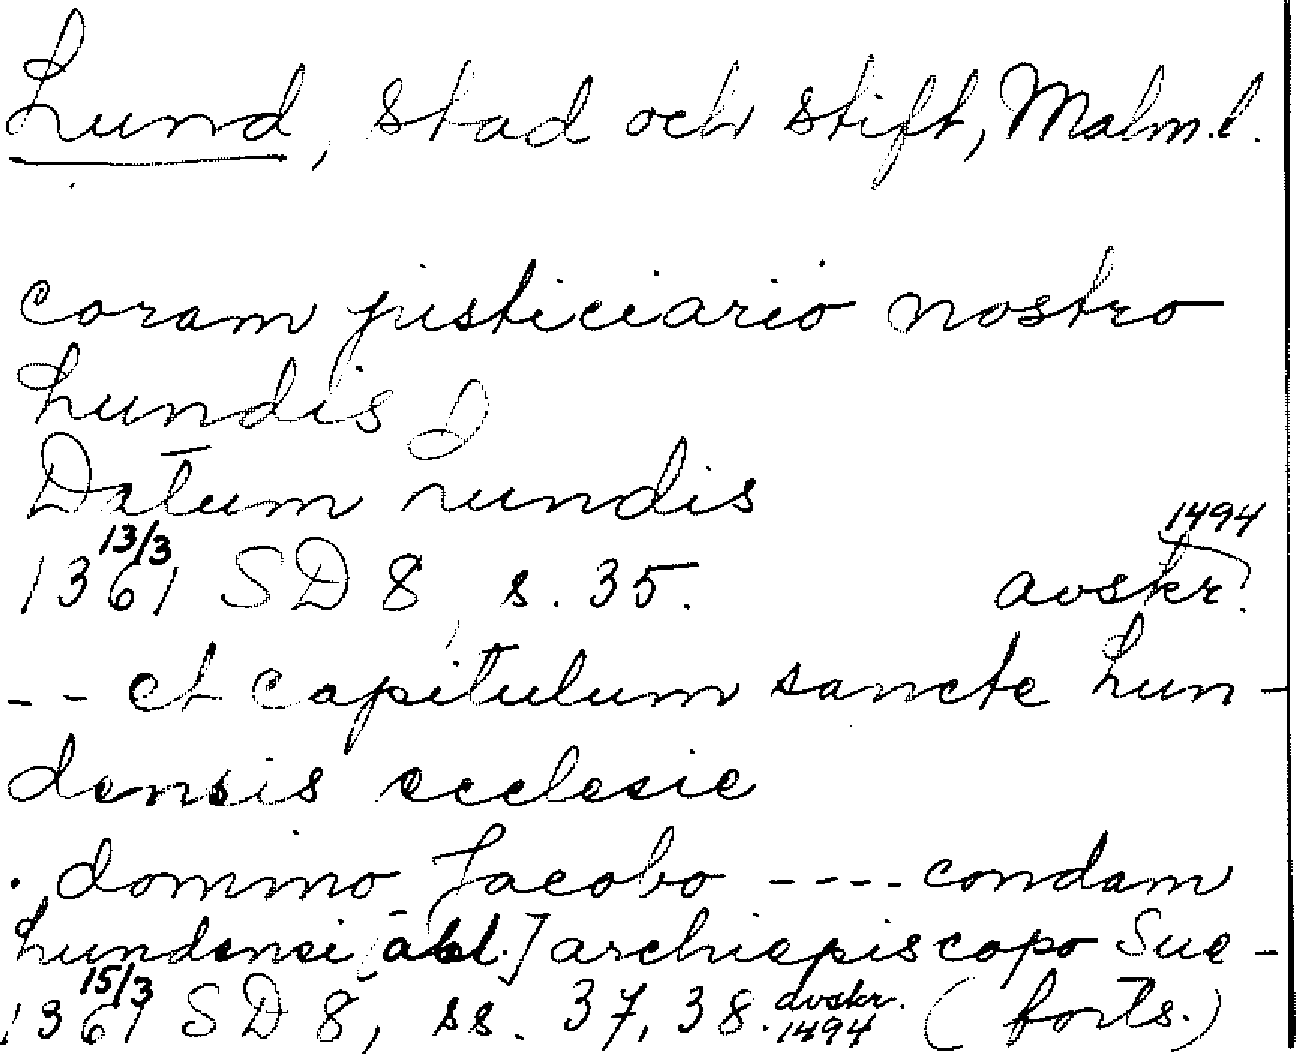 Lund, stad och stift, Malm.l.
coram justiciario nostro
Lundis
Datum Lundis
1494
13/3
1361 SD 8, s. 35. avskr.
-- et capitulum sancte Lun-
densis ecclesie
. domino Jacobo ---- condam
Lundensi [abl.] archiepiscopo Sue-
15/3
1361 SD 8, ss. 37, 38. avskr. 1494 (forts.)